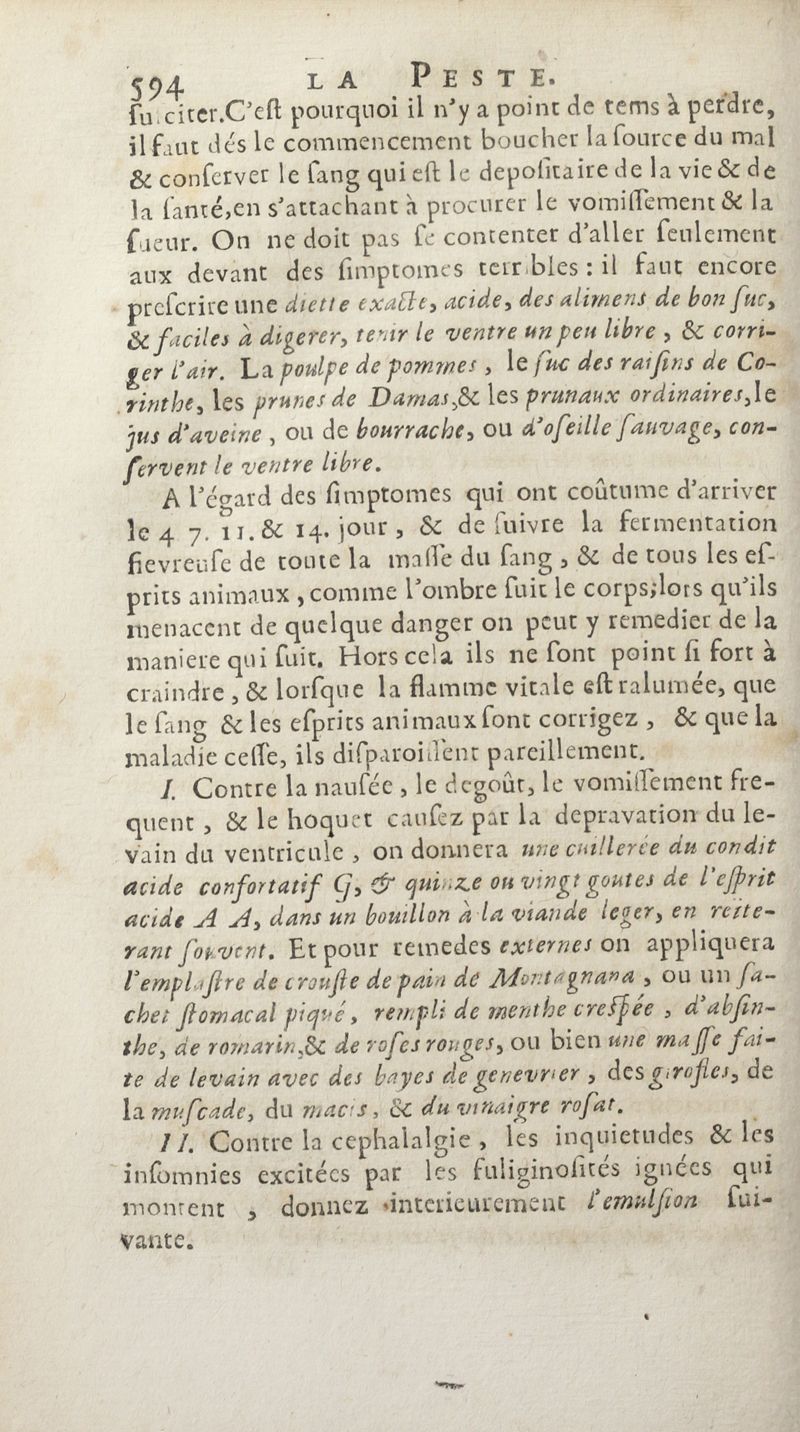 594 LA PESTE.
ſuſciter.C'eſt pourquoi il n'y a point de tems à perdre,
il faut dés le commencement boucher la ſource du mal
& conſerver le ſang qui eſt le depoſitaire de la vie & de
la ſanté,en s'attachant à procurer le vomiſſement & la
ſueur. On ne doit pas ſe contenter d'aller ſeulement
aux devant des ſimptomes terribles : il faut encore
preſcrire une diette exacte, acide, des alimens de bon ſuc,
& faciles à digerer, tenir le ventre un peu libre , & corri-
ger l'air. La poulpe de pommes , le ſuc des raiſins de Co-
rinthe, les prunes de Damas,& les prunaux ordinaires,le
jus d'aveine , ou de bourrache, ou d'oſeille ſauvage, con-
ſervent le ventre libre.
A l'égard des ſimptomes qui ont coûtume d'arriver
le 4 7. 11. & 14. jour , & de ſuivre la fermentation
fievreuſe de toute la maſſe du ſang , & de tous les eſ-
prits animaux , comme l'ombre ſuit le corps;lors qu'ils
menacent de quelque danger on peut y remedier de la
maniere qui ſuit. Hors cela ils ne ſont point ſi fort à
craindre , & lorſque la flamme vitale eſt ralumée, que
le ſang & les eſprits animaux ſont corrigez , & que la
maladie ceſſe, ils diſparoiſſent pareillement.
I. Contre la nauſée , le degoût, le vomiſſement fre-
quent , & le hoquet cauſez par la depravation du le-
vain du ventricule , on donnera une cuillerée du condit
acide confortatif G, & quinze ou vingt goutes de l'eſprit
acide A A, dans un bouillon à la viande leger, en reïte-
rant ſouvent. Et pour remedes externes on appliquera
l'emplaſtre de crouſte de pain de Montagnana , ou un ſa-
chet ſtomacal piqué , rempli de menthe creſpée , d'abſin-
the, de romarin,& de roſes rouges, ou bien une maſſe fai-
te de levain avec des bayes de genevrier , des girofles, de
la muſcade, du macis, & du vinaigre roſat.
II. Contre la cephalalgie , les inquietudes & les
inſomnies excitées par les fuliginoſités ignées qui
montent , donnez interieurement l'emulſion ſui-
vante.